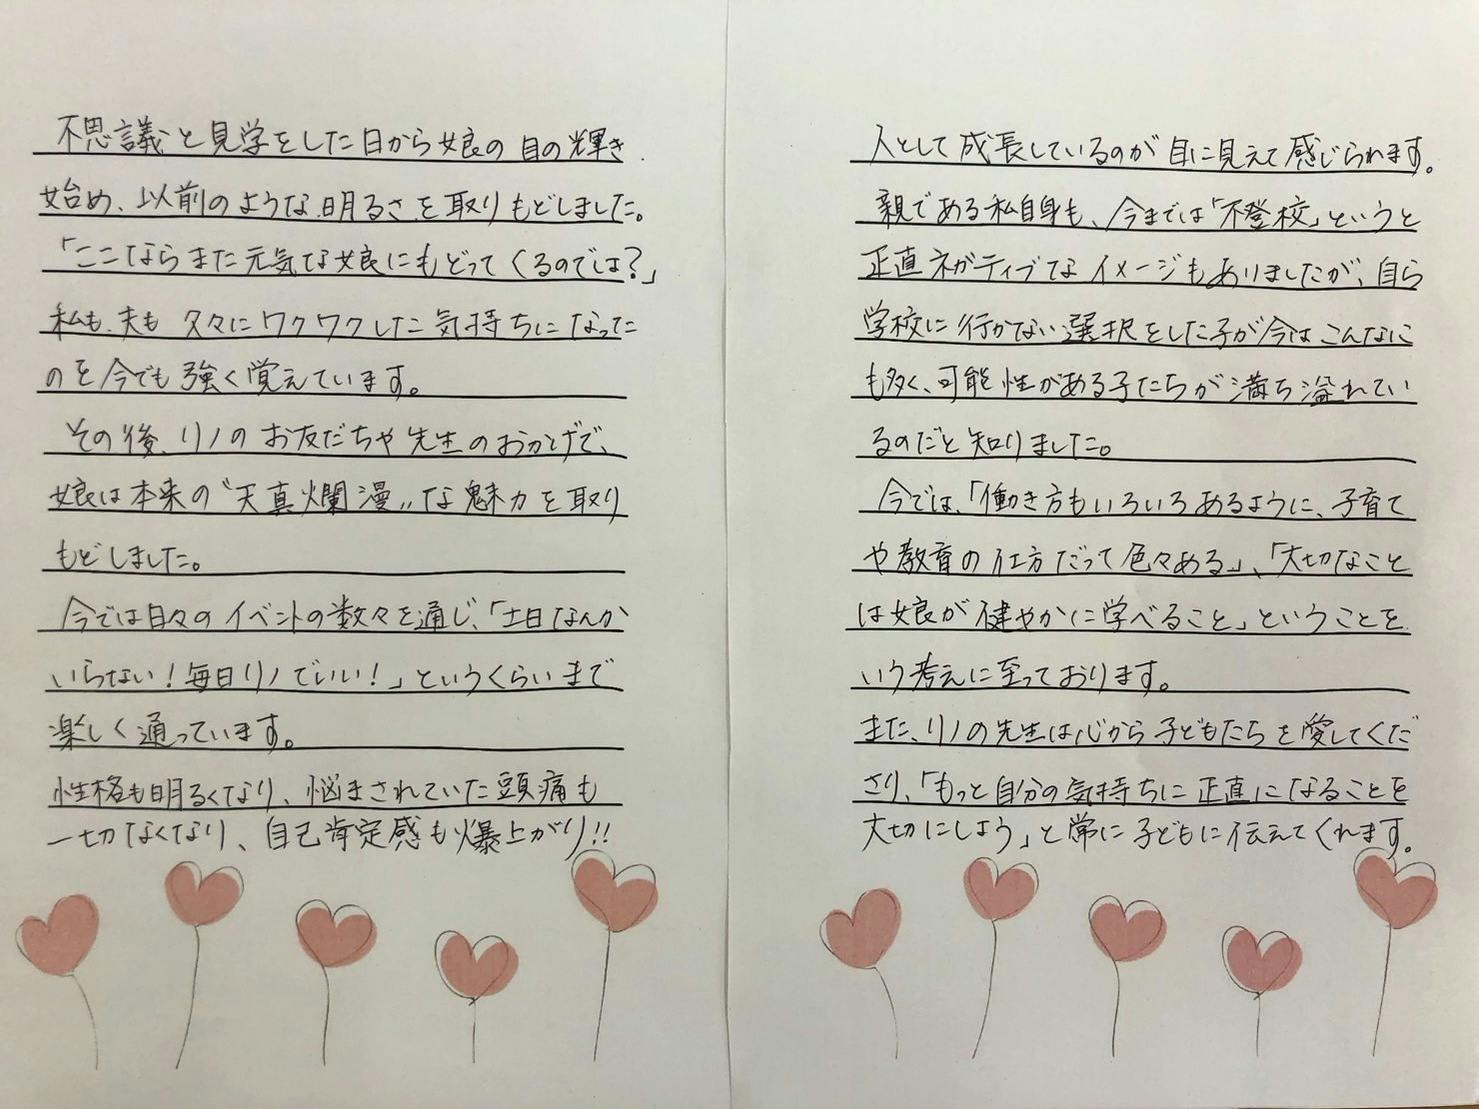 不思議と見学をした日から娘の目の輝き
始め、以前のような明るさを取りもどしました。
「ここならまた元気な娘にもどってくるのでは?」
私も、夫も久々にワクワクした気持ちになった
のを今でも強く覚えています。
その後、リノのお友だちや先生のおかげで、
娘は本来の〝天真爛漫〟な魅力を取り
もどしました。
今では日々のイベントの数々を通じ、「土日なんか
いらない!毎日リノでいい!」というくらいまで
楽しく通っています。
性格も明るくなり、悩まされていた頭痛も
一切なくなり、自己肯定感も爆上がり!!
人として成長しているのが目に見えて感じられます。
親である私自身も、今までは「不登校」というと
正直ネガティブなイメージもありましたが、自ら
学校に行かない選択をした子が今はこんなに
も多く、可能性がある子たちが満ち溢れてい
るのだと知りました。
今では、「働き方もいろいろあるように、子育て
や教育の仕方だって色々ある」、「大切なこと
は娘が健やかに学べること」ということを
いう考えに至っております。
また、リノの先生は心から子どもたちを愛してくだ
さり、「もっと自分の気持ちに正直になることを
大切にしよう」と常に子どもに伝えてくれます。